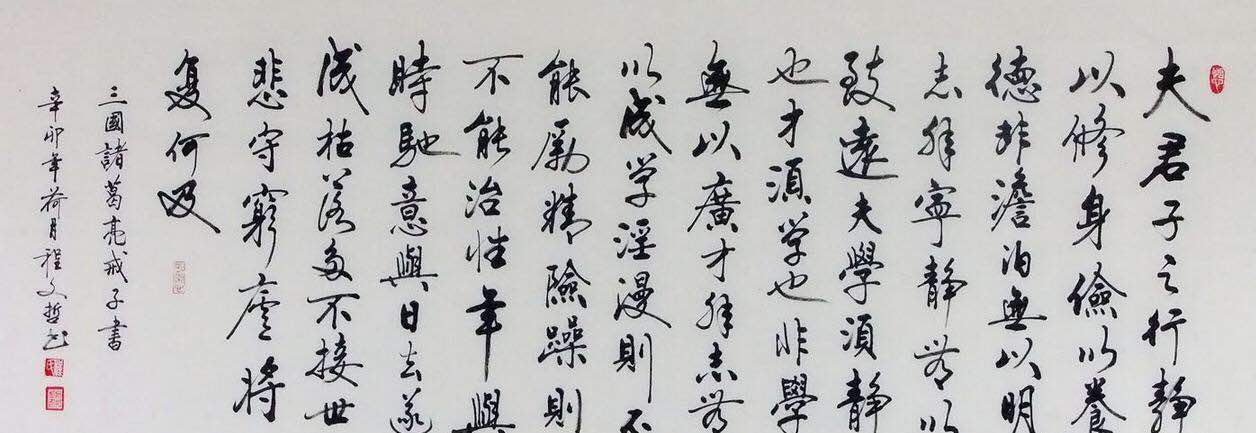 夫君子之行静
以修身儉以養
德非澹泊無以明
志非寧静無以
致遠夫學須静
也才須学也非學
無以廣才非志無
以成学淫漫則不
能勵精險躁則
不能治性年與
時馳意與日去遂
成枯落多不接世
悲守窮廬將
復何及
三國諸葛亮戒子書
辛卯年荷月程文哲书